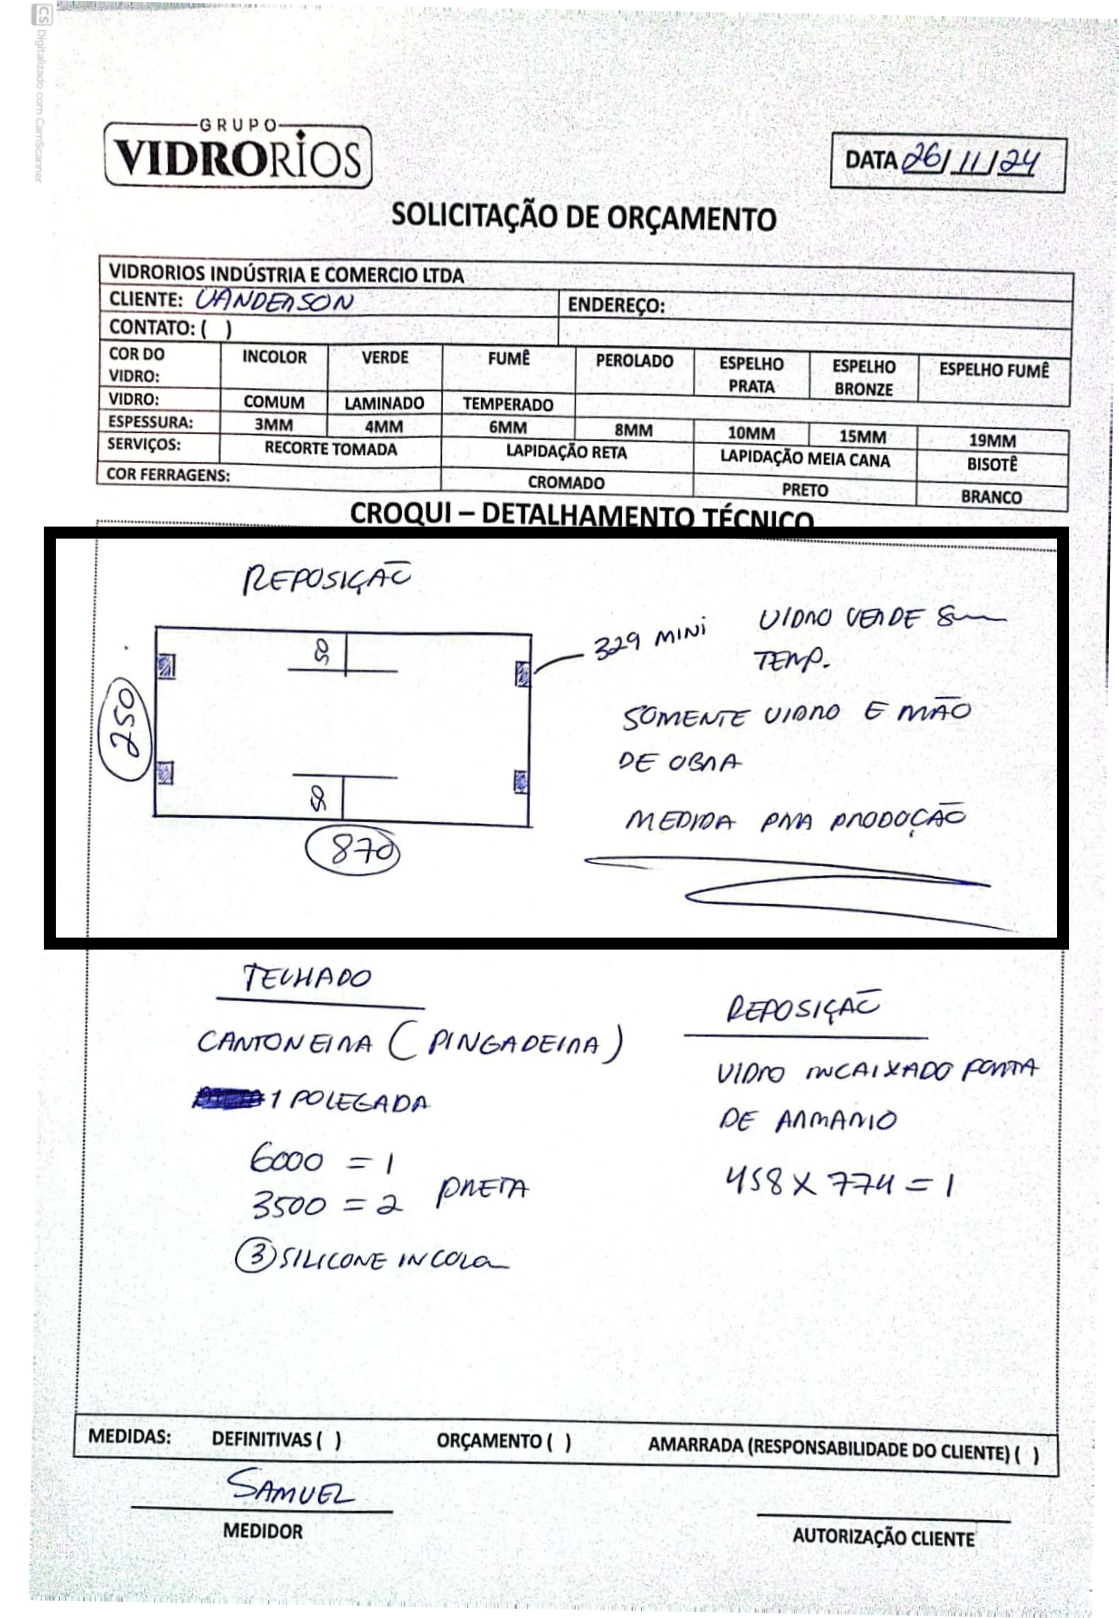 CS Digitalizado com CamScanner
GRUPO
VIDRORIOS
DATA 26/11/24
SOLICITAÇÃO DE ORÇAMENTO
VIDRORIOS INDÚSTRIA E COMERCIO LTDA
CLIENTE: VANDERSON
ENDEREÇO:
CONTATO: ( )
COR DO VIDRO: INCOLOR VERDE FUMÊ PEROLADO ESPELHO PRATA ESPELHO BRONZE ESPELHO FUMÊ
VIDRO: COMUM LAMINADO TEMPERADO
ESPESSURA: 3MM 4MM 6MM 8MM 10MM 15MM 19MM
SERVIÇOS: RECORTE TOMADA LAPIDAÇÃO RETA LAPIDAÇÃO MEIA CANA BISOTÊ
COR FERRAGENS: CROMADO PRETO BRANCO
CROQUI – DETALHAMENTO TÉCNICO
REPOSIÇÃO
50
329 MINI
VIDRO VERDE 8mm
TEMP.
250
SOMENTE VIDRO E MÃO
DE OBRA
50
MEDIDA PRA PRODUÇÃO
870
TELHADO
CANTONEIRA (PINGADEIRA)
1 POLEGADA
6000 = 1
3500 = 2 PRETA
3 SILICONE INCOLOR
REPOSIÇÃO
VIDRO INCAIXADO PORTA
DE ARMARIO
458 X 774 = 1
MEDIDAS: DEFINITIVAS ( ) ORÇAMENTO ( ) AMARRADA (RESPONSABILIDADE DO CLIENTE) ( )
SAMUEL
MEDIDOR
AUTORIZAÇÃO CLIENTE